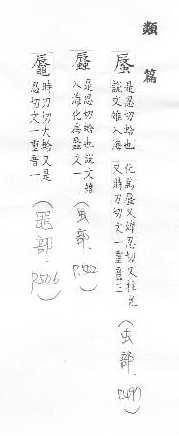 類篇
蜃 是忍切蛤也說文雉入海化爲蜃又婢忍切又柱兗
又時刃切文一重音三 (虫部. P.497)
蜄 是忍切蛤也說文雉入海化為蜃文一 (虫部. P.502)
時刃切大蛤又是忍切文一重音一 (黽部. P.506)